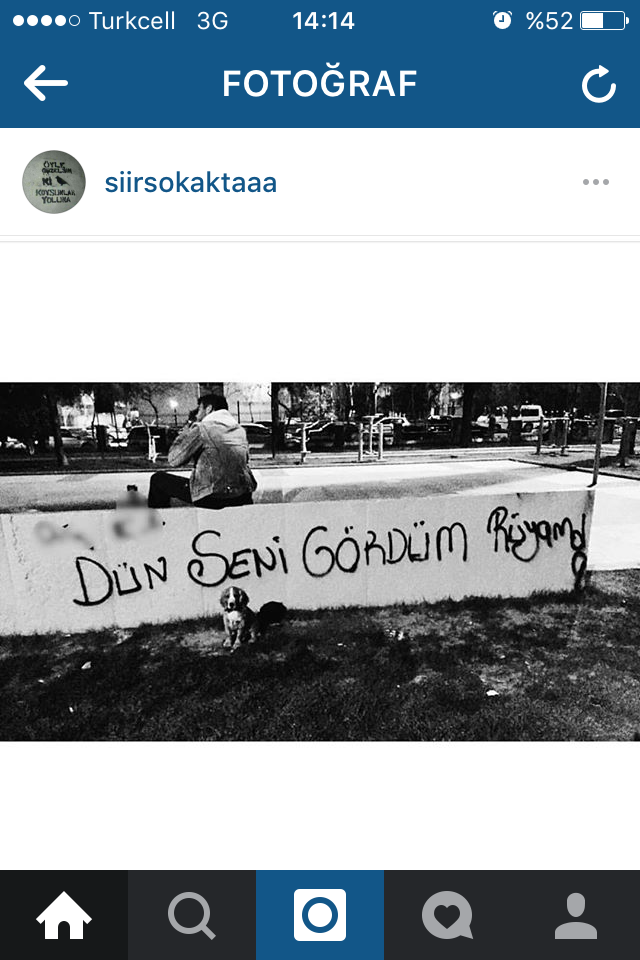 Turkcell 3G 14:14 %52
FOTOĞRAF
ÖYLE
GÜZELSİN
Kİ
KOYSUNLAR
YOLUNA
siirsokaktaaa
DÜN SENİ GÖRDÜM RÜyamda